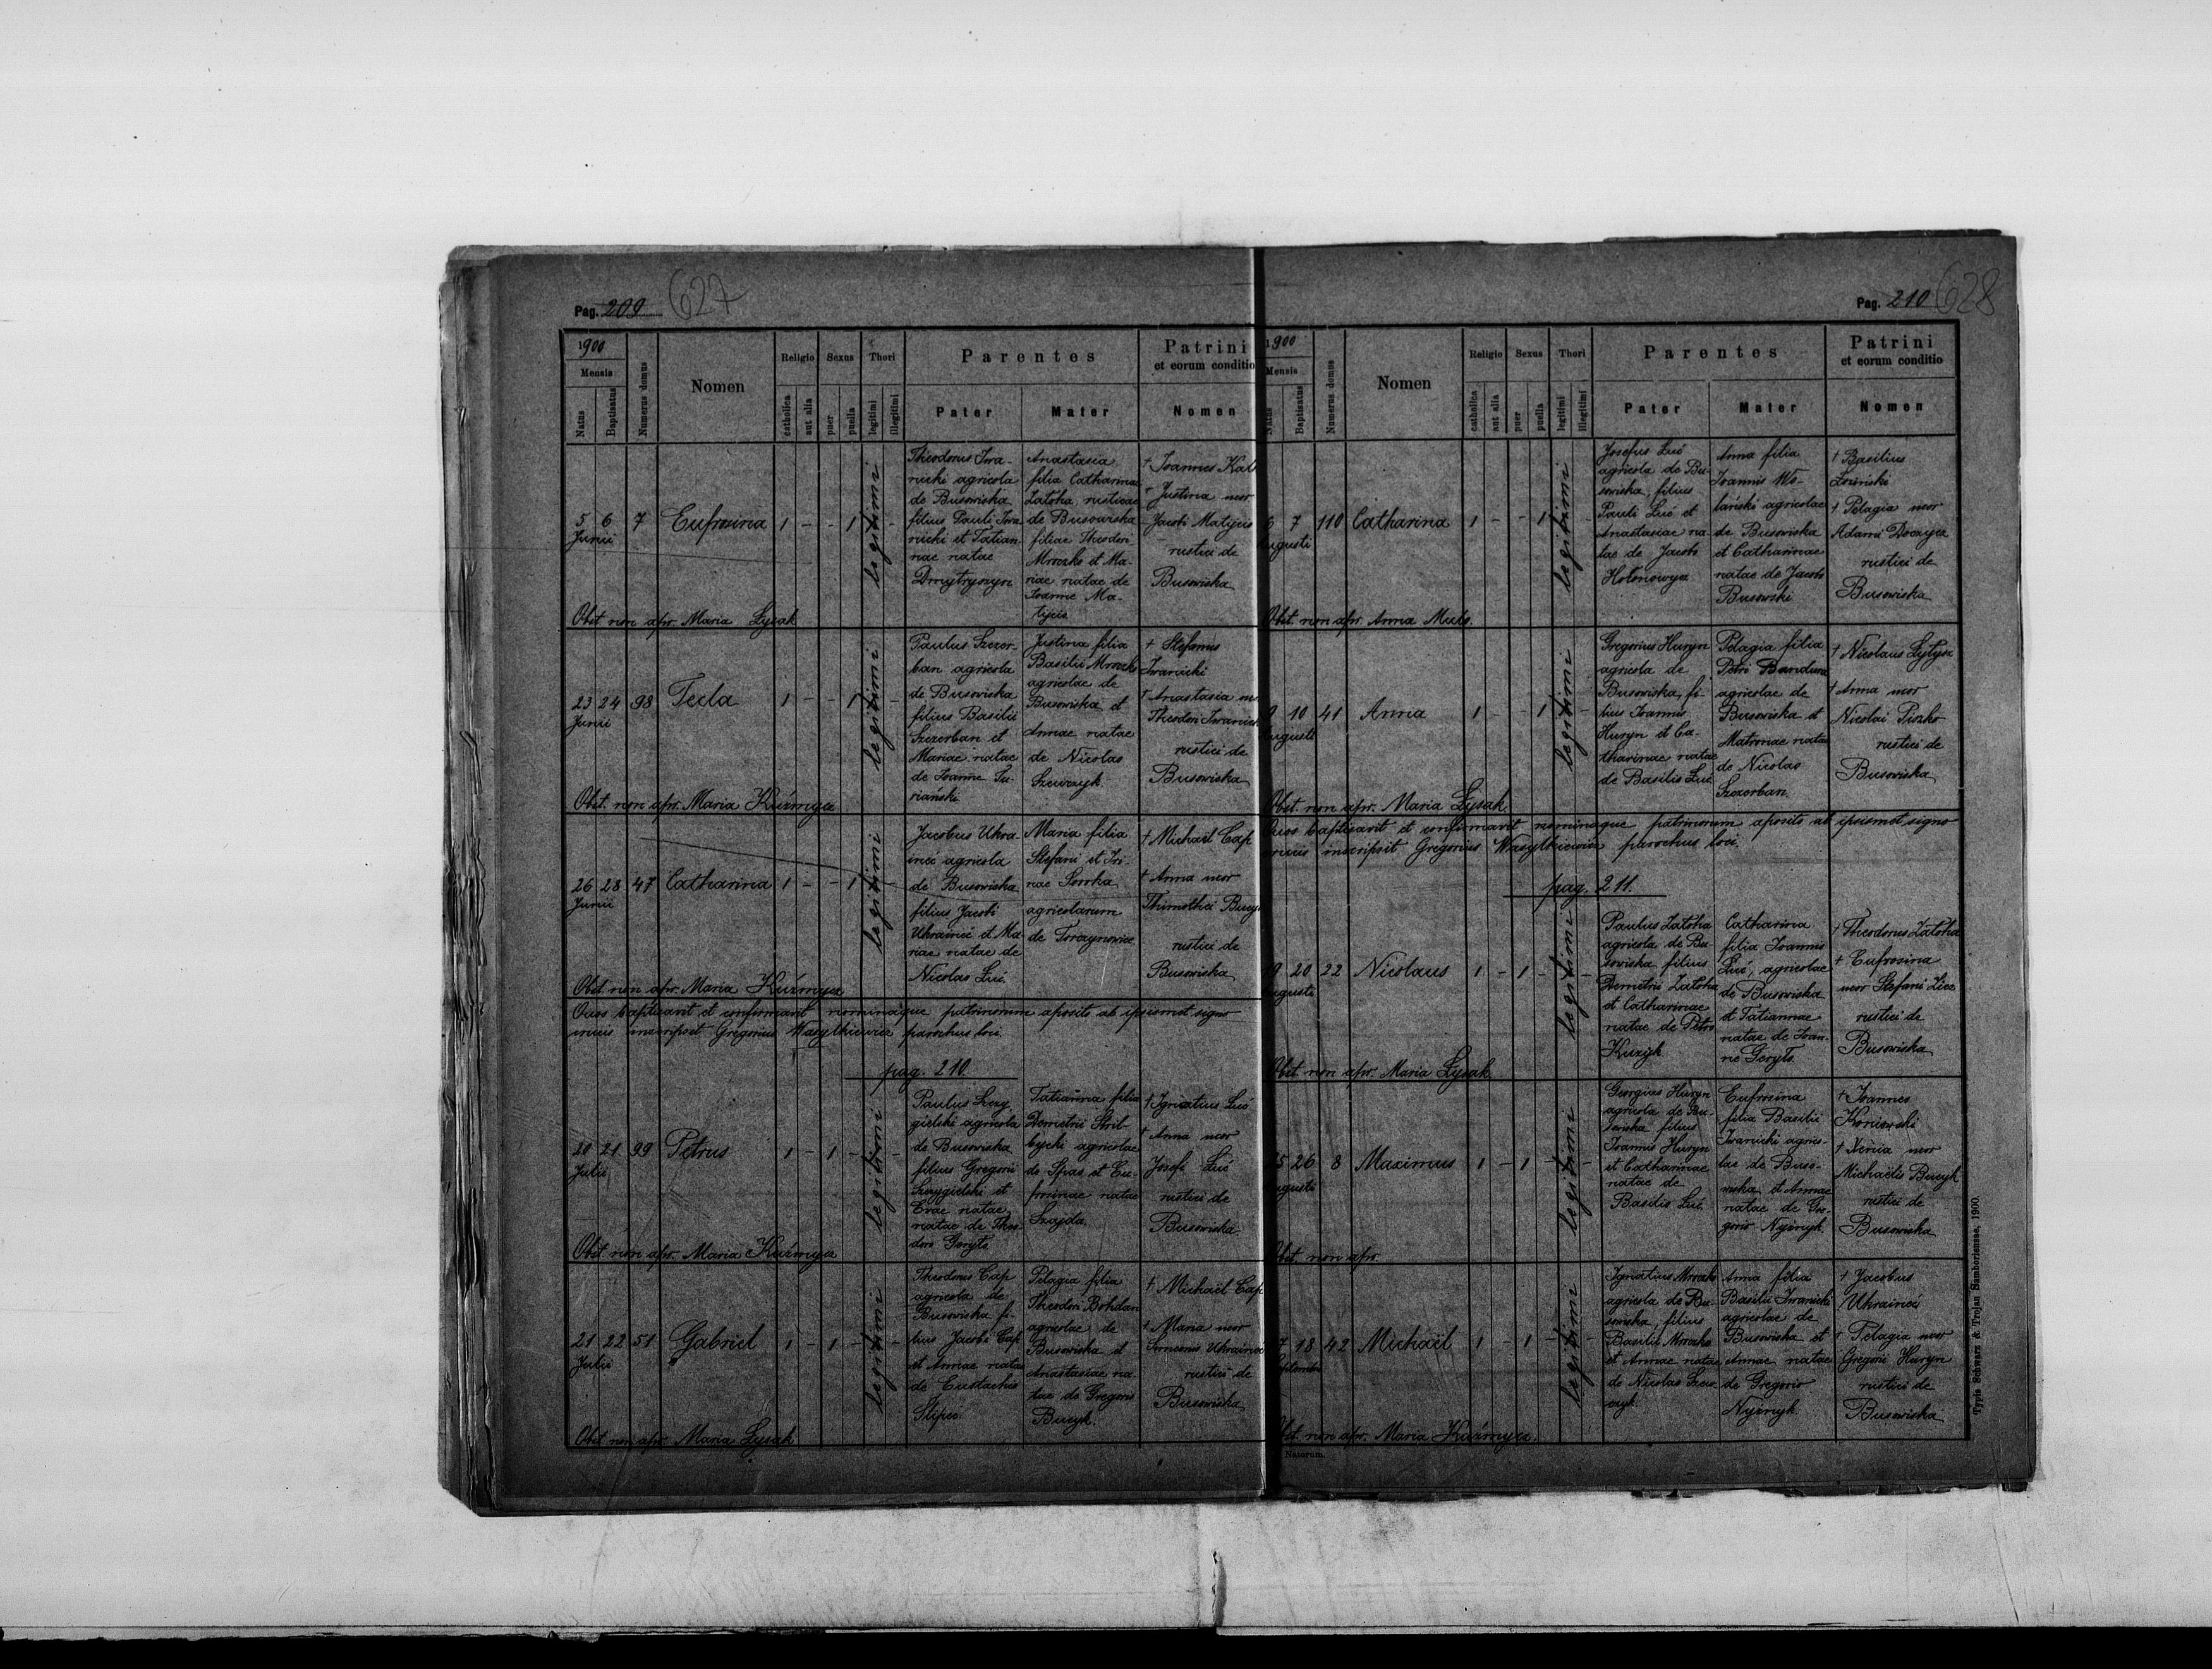 Pag. 209 627
1900
Mensis
Natus
Baptisatus
Numerus domus
Nomen
Religio
catholica
aut alia
Sexus
puer
puella
Thori
legitimi
illegitimi
Parentes
Pater
Mater
Patrini
et eorum conditio
Nomen
5 6 7 Eufrosina 1 - - 1 legitimi -
Junii
Theodorus Iwa-
nicki agricola
de Busowiska
filius Pauli Iwa
nicki et Tatian-
nae natae
Dmytryszyn
Anastasia
filia Catharinae
Zatoka rusticae
de Busowiska
filiae Theodori
Mroczko et Ma-
riae natae de
Joanne Ma-
tycio
† Joannes
† Justina uxor
Jacobi Matycio
rustici de
Busowiska
Obst. non apr. Maria Łysak
23 24 98 Tecla 1 - - 1 legitimi
Junii
Paulus Szczer-
ban agricola
de Busowiska
filius Basilii
Szczerban et
Mariae natae
de Joanne Tu-
riański
Justina filia
Basilii Mroczko
agricolae de
Busowiska et
Annae natae
de Nicolao
Szewczyk
† Stefanus
Iwanicki
† Anastasia
Theodori
rustici de
Busowiska
Obst. non apr. Maria Kuźmycz
26 28 47 Catharina 1 - - 1 legitimi -
Junii
Jacobus Ukra-
ineć agricola
de Busowiska
filius Jacobi
Ukraineć et Ma-
riae natae de
Nicolao Luć
Maria filia
Stefani et Iri-
nae Soroka
agricolarum
de Torczynowice
† Michaël Cap
† Anna uxor
Thimothei
rustici de
Busowiska
Obst. non apr. Maria Kuźmycz
Quos baptisavit et confirmavit nominaque patrinorum aposito ab ipsismet signo
crucis inscripsit Gregorius Wasylkiewicz parochus loci.
pag. 210
20 21 99 Petrus 1 - 1 - legitimi -
Julii
Paulus Szczy
gielski agricola
de Busowiska
filius Gregorii
Szczygielski et
Evae natae
natae de Theo-
doro Geryło
Tatianna filia
Demetrii Stril-
bycki agricolae
de Spas et Eu-
frosinae natae
Szajda
† Ignatius Luć
† Anna uxor
Josefi Luć
rustici de
Busowiska
Obst. non apr. Maria Kuźmycz
21 22 51 Gabriel 1 - 1 - legitimi -
Julii
Theodorus Cap
agricola de
Busowiska fi-
lius Jacobi Cap
et Annae natae
de Eustachio
Slipec
Pelagia filia
Theodori Bohdan
agricolae de
Busowiska et
Anastasiae na-
tae de Gregorio
Bucyk.
† Michaël Cap
† Maria uxor
Simeonis
rustici de
Busowiska
Obst. non apr. Maria Łysak
Pag. 210 628
1900
Mensis
Natus
Baptisatus
Numerus domus
Nomen
Religio
catholica
aut alia
Sexus
puer
puella
Thori
legitimi
illegitimi
Parentes
Pater
Mater
Patrini
et eorum conditio
Nomen
6 7 110 Catharina 1 - - 1 legitimi -
Augusti
Josefus Luć
agricola de Bu-
sowiska, filius
Pauli Luć et
Anastasiae na-
tae de Jacobo
Hołonowycz
Anna filia
Joannis Wo-
lański agricolae
de Busowiska
et Catharinae
natae de Jacobo
Busowski
† Basilius
Łoziński
† Pelagia uxor
Adami
rustici de
Busowiska
Obst. non apr. Anna
9 10 41 Anna 1 - - 1 legitimi
Augusti
Gregorius Huryn
agricola de
Busowiska, fi-
lius Joannis
Huryn et Ca-
tharinae natae
de Basilio Luć
Pelagia filia
Petri Bandura
agricolae de
Busowiska et
Matronae natae
de Nicolao
Szczerban.
† Nicolaus
† Anna uxor
Nicolai
rustici de
Busowiska
Obst. non apr. Maria Łysak
Quos baptisavit et confirmavit nominaque patrinorum aposito ab ipsismet signo
crucis inscripsit Gregorius Wasylkiewicz parochus loci.
pag. 211.
19 20 22 Nicolaus 1 - 1 - legitimi -
Augusti
Paulus Zatoka
agricola de Bu-
sowiska filius
Demetrii Zatoka
et Catharinae
natae de Petro
Kuzyk
Catharina
filia Joannis
Luć, agricolae
de Busowiska
et Tatiannae
natae de Joan-
ne Geryło
† Theodorus Zatoka
† Eufrosina
uxor Stefani
rustici de
Busowiska
Obst. non apr. Maria Łysak
25 26 8 Maximus 1 - 1 - legitimi -
Augusti
Georgius Huryn
agricola de Bu-
sowiska filius
Joannis Huryn
et Catharinae
natae de
Basilio Luć
Eufrosina
filia Basilii
Iwanicki agrico-
lae de Buso-
wiska et Annae
natae de Gre-
gorio Nyżnyk
† Joannes
† Xenia uxor
Michaëlis Bucyk
rustici de
Busowiska
Obst. non apr.
17 18 42 Michaël 1 - 1 - legitimi -
Ignatius Mroczko
agricola de Bu-
sowiska, filius
Basilii Mroczko
et Annae natae
de Nicolao Szew-
czyk.
Anna filia
Basilii Iwanicki
agricolae de
Busowiska et
Annae natae
de Gregorio
Nyżnyk
† Jacobus
Ukraineć
† Pelagia uxor
Gregorii Huryn
rustici de
Busowiska
Obst. non apr. Maria Kuźmycz.
Natorum.
Typis Schwarz & Trojan Samboriense, 1900.